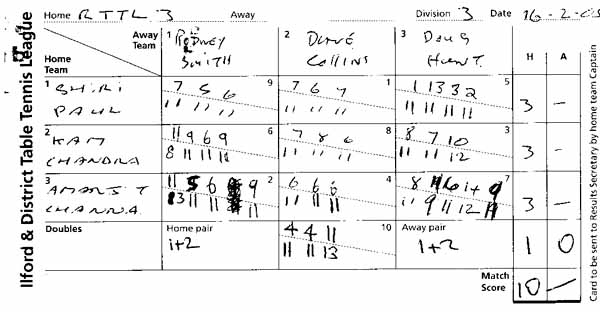 Ilford & District Table Tennis League
Home RTTL 3 Away Division 3 Date 16-2-05
Away Team 1 RODNEY SMITH 2 DAVE COLLINS 3 DOUG HUNT H A
Home Team
1 SHIRI PAUL 7 5 6 9 7 6 7 1 1 13 3 2 5
11 11 11 11 11 11 11 11 11 11 3 -
2 KAM CHANDRA 11 9 6 9 6 7 8 6 8 8 7 10 3
8 11 11 11 11 11 11 11 11 12 3 -
3 CHANNA 11 5 6 9 2 6 6 6 4 8 7
13 11 11 11 11 11 11 11 9 11 12 3 -
Doubles Home pair 4 4 11 10 Away pair
1+2 11 11 13 1+2 1 0
Match Score 10 -
Card to be sent to Results Secretary by home team Captain